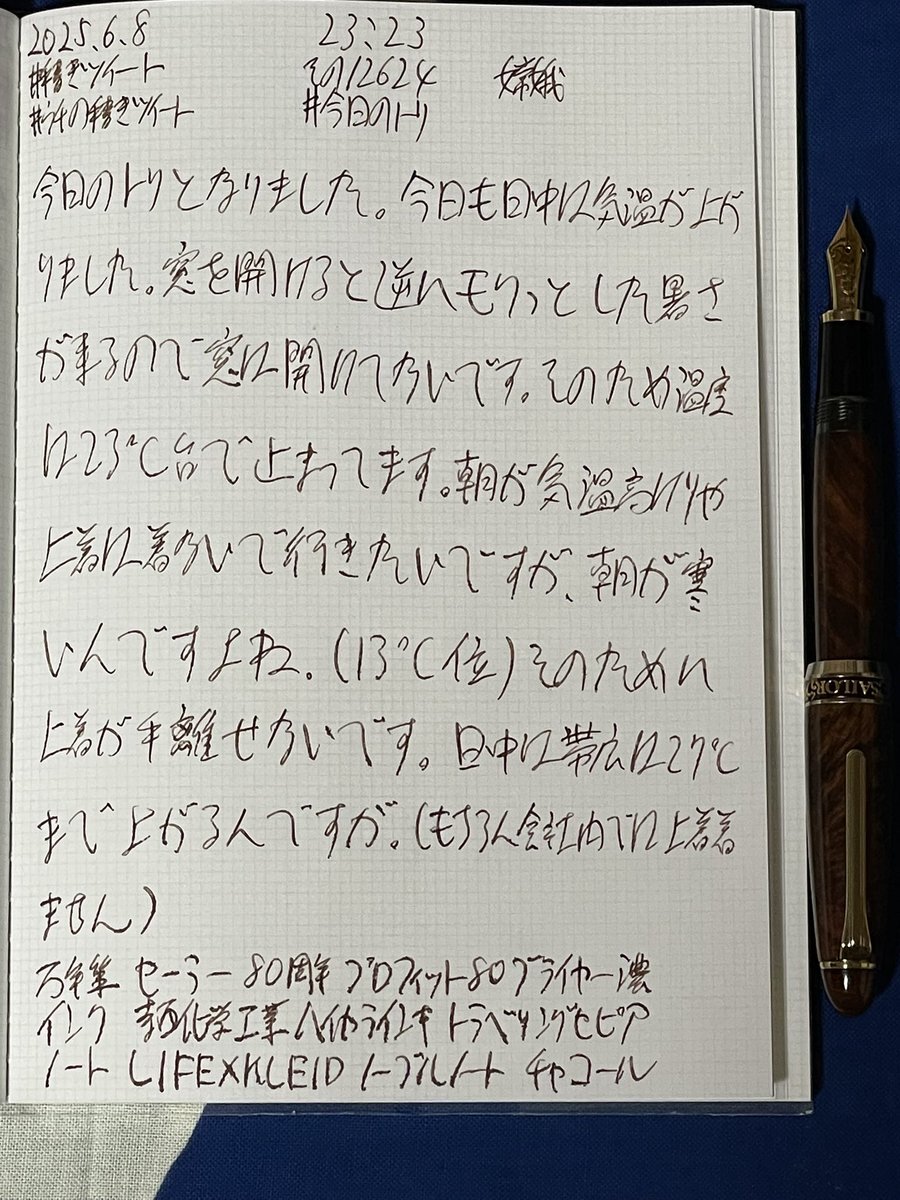 2025.6.8 23:23
#手書きツイート その12624 嫦娥
#うちの手書きツイート #今日のトリ
今日のトリとなりました。今日も日中は気温が上が
りました。窓を開けると逆にモワっとした暑さ
が来るので窓は開けてないです。そのため温度
は23℃台で止まってます。朝が気温高けりゃ
上着は着ないで行きたいですが、朝が寒
いんですよね。(13℃位)そのために
上着が手離せないです。日中は帯広は27℃
まで上がるんですが。(もちろん会社内では上着着
ません)
万年筆 セーラー80周年プロフィット80ブライヤー濃
インク 化学工業 トラベリングセピア
ノート LIFE×KLEID ノーブルノート チャコール
SAILOR